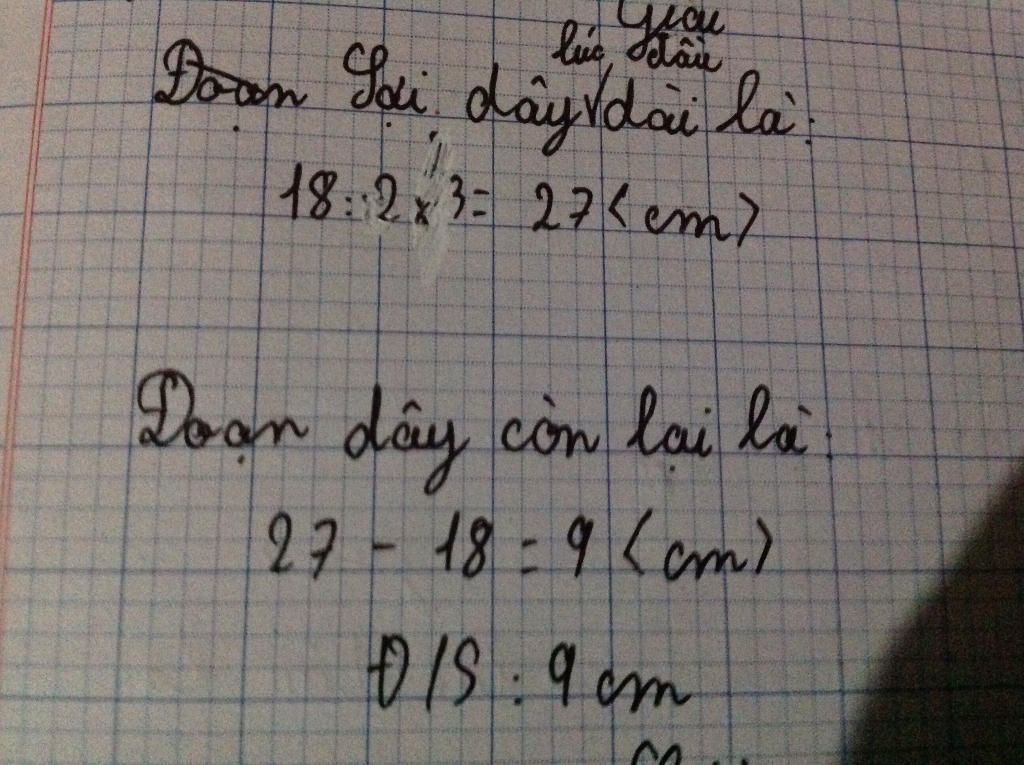 Giải
lúc đầu
Đoạn Sợi dây dài là:
18 : 2 x 3 = 27 (cm)
Đoạn dây còn lại là:
27 - 18 = 9 (cm)
Đ/S : 9 cm